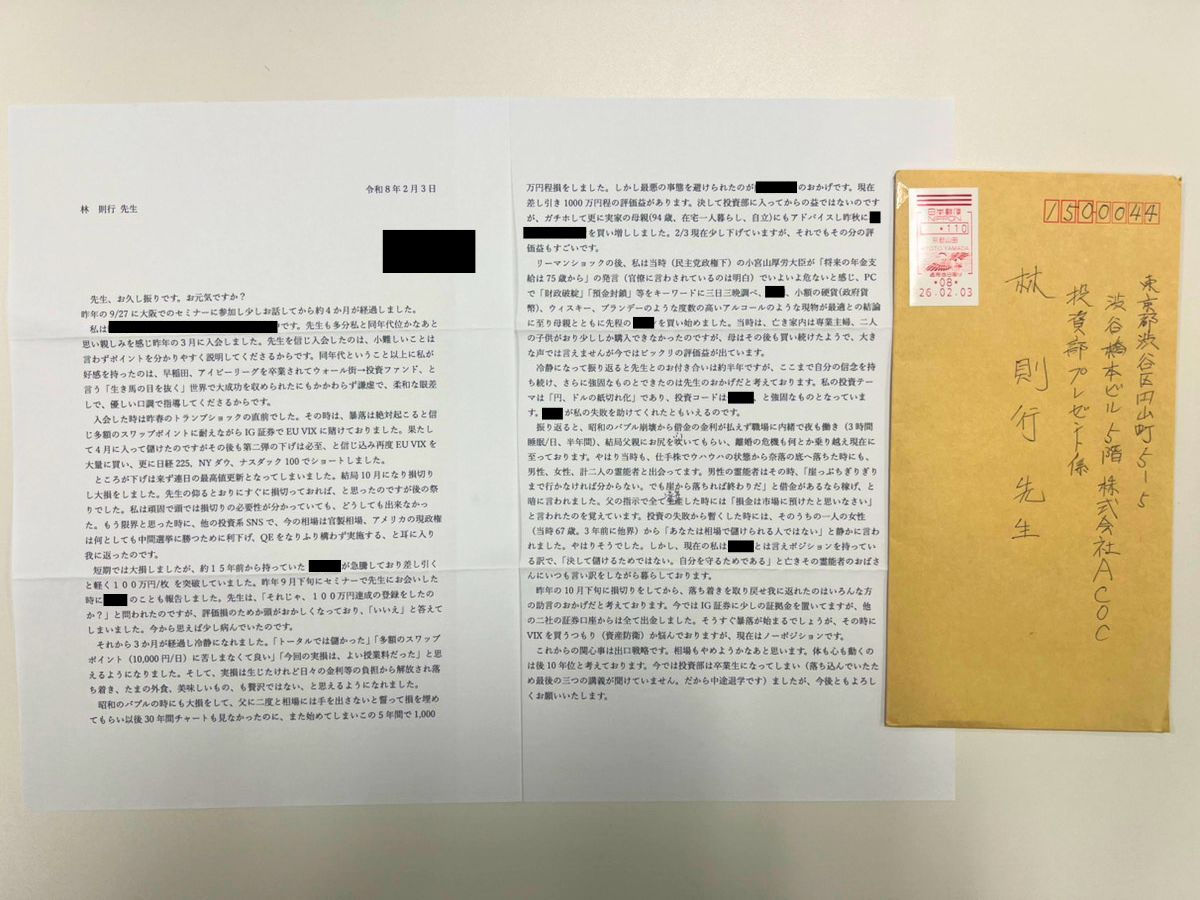 令和８年２月３日
林　則行 先生
先生、お久し振りです。お元気ですか？
昨年の9/27に大阪でのセミナーに参加し少しお話してから約４か月が経過しました。
私は
です。先生も多分私と同年代位かなあと
思い親しみを感じ昨年の３月に入会しました。先生を信じ入会したのは、小難しいことは
言わずポイントを分かりやすく説明してくださるからです。同年代ということ以上に私が
好感を持ったのは、早稲田、アイビーリーグを卒業されてウォール街→投資ファンド、と
言う「生き馬の目を抜く」世界で大成功を収められたにもかかわらず謙虚で、柔和な眼差
しで、優しい口調で指導してくださるからです。
入会した時は昨春のトランプショックの直前でした。その時は、暴落は絶対起こると信
じ多額のスワップポイントに耐えながらIG証券でEU VIXに賭けておりました。果たし
て４月に入って儲けたのですがその後も第二弾の下げは必至、と信じ込み再度EU VIXを
大量に買い、更に日経225、NYダウ、ナスダック100でショートしました。
ところが下げは来ず連日の最高値更新となってしまいました。結局10月になり損切り
し大損しました。先生の仰るとおりにすぐに損切っておれば、と思ったのですが後の祭
りでした。私は頑固で頭では損切りの必要性が分かっていても、どうしても出来なかっ
た。もう限界と思った時に、他の投資系SNSで、今の相場は官製相場、アメリカの現政権
は何としても中間選挙に勝つために利下げ、QEをなりふり構わず実施する、と耳に入り
我に返ったのです。
短期では大損しましたが、約１５年前から持っていた
が急騰しており差し引く
と軽く１００万円/枚 を突破していました。昨年９月下旬にセミナーで先生にお会いした
時に
のことも報告しました。先生は、「それじゃ、１００万円達成の登録をしたの
か？」と問われたのですが、評価損のためか頭がおかしくなっており、「いいえ」と答えて
しまいました。今から思えば少し病んでいたのです。
それから３か月が経過し冷静になれました。「トータルでは儲かった」「多額のスワップ
ポイント（10,000円/日）に苦しまなくて良い」「今回の実損は、よい授業料だった」と思
えるようになりました。そして、実損は生じたけれど日々の金利等の負担から解放され落
ち着き、たまの外食、美味しいもの、も贅沢ではない、と思えるようになれました。
昭和のバブルの時にも大損して、父に二度と相場には手を出さないと誓って損を埋め
てもらい以後30年間チャートも見なかったのに、また始めてしまいこの５年間で1,000
万円程損をしました。しかし最悪の事態を避けられたのが
のおかげです。現在
差し引き1000万円程の評価益があります。決して投資部に入ってからの益ではないのです
が、ガチホして更に実家の母親(94歳、在宅一人暮らし、自立)にもアドバイスし昨秋に
を買い増ししました。2/3現在少し下げていますが、それでもその分の評
価益もすごいです。
リーマンショックの後、私は当時（民主党政権下）の小宮山厚労大臣が「将来の年金支
給は75歳から」の発言（官僚に言わされているのは明白）でいよいよ危ないと感じ、PC
で「財政破綻」「預金封鎖」等をキーワードに三日三晩調べ、
、小額の硬貨(政府貨
幣)、ウィスキー、ブランデーのような度数の高いアルコールのような現物が最適との結論
に至り母親とともに先程の
を買い始めました。当時は、亡き家内は専業主婦、二人
の子供がおり少ししか購入できなかったのですが、母はその後も買い続けたようで、大き
な声では言えませんが今ではビックリの評価益が出ています。
冷静になって振り返ると先生とのお付き合いは約半年ですが、ここまで自分の信念を持
ち続け、さらに強固なものとできたのは先生のおかげだと考えております。私の投資テー
マは「円、ドルの紙切れ化」であり、投資コードは
、と強固なものとなっていま
す。
が私の失敗を助けてくれたともいえるのです。
振り返ると、昭和のバブル崩壊から借金の金利が払えず職場に内緒で夜も働き（３時間
睡眠/日、半年間)、結局父親にお尻を吹いてもらい、離婚の危機も何とか乗り越え現在に
至っております。やはり当時も、仕手株でウハウハの状態から奈落の底へ落ちた時にも、
男性、女性、計二人の霊能者と出会ってます。男性の霊能者はその時、「崖っぷちぎりぎり
まで行かなければ分からない。でも崖から落ちれば終わりだ」と借金があるなら稼げ、と
暗に言われました。父の指示で全て生産した時には「損金は市場に預けたと思いなさい」
と言われたのを覚えています。投資の失敗から暫くした時には、そのうちの一人の女性
（当時67歳。３年前に他界）から「あなたは相場で儲けられる人ではない」と静かに言わ
れました。やはりそうでした。しかし、現在の私は
とは言えポジションを持ってい
る訳で、「決して儲けるためではない。自分を守るためである」と亡きその霊能者のおばさ
んにいつも言い訳をしながら暮らしております。
昨年の10月下旬に損切りをしてから、落ち着きを取り戻せ我に返れたのはいろんな方
の助言のおかげだと考えております。今ではIG証券に少しの証拠金を置いてますが、他
の二社の証券口座からは全て出金しました。そうすぐ暴落が始まるでしょうが、その時に
VIXを買うつもり（資産防衛）か悩んでおりますが、現在はノーポジションです。
これからの関心事は出口戦略です。相場もやめようかなあと思います。体も心も動くの
は後10年位と考えております。今では投資部は卒業生になってしまい（落ち込んでいたた
め最後の三つの講義が聞けていません。だから中途退学です）ましたが、今後ともよろし
くお願いいたします。
日本郵便
NIPPON
110
京都山田
KYOTO-YAMADA
08
26.02.03
1500044
東京都渋谷区円山町5-5
渋谷橋本ビル5階 株式会社ACOC
投資部プレゼント係
林 則行 先生